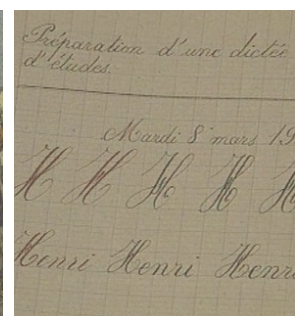 Préparation d'une dictée
d'études.
Mardi 8 mars 19
H H H H H
Henri Henri Henri